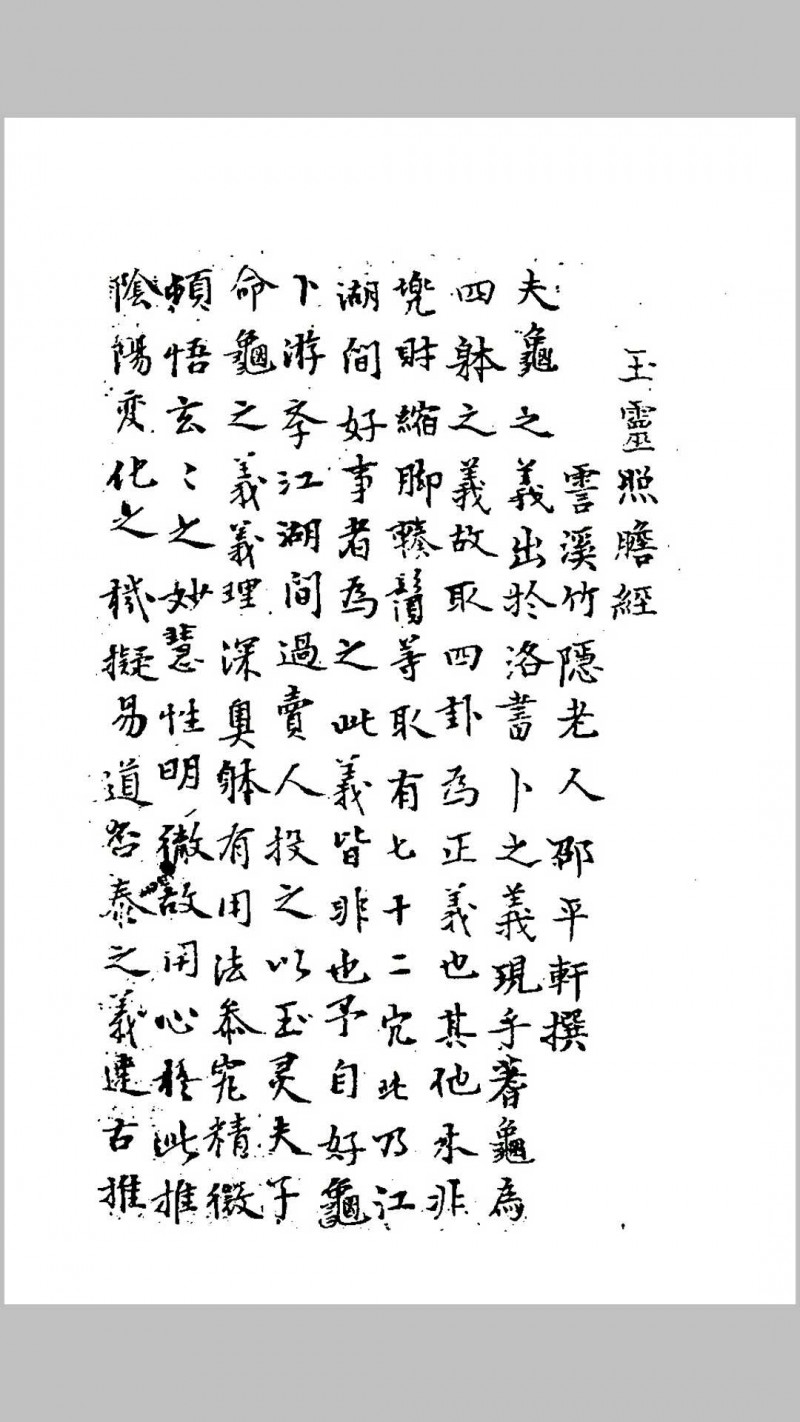 玉靈照膽經
霅溪竹隱老人邵平軒撰
夫龜之義出於洛書卜之義現乎蓍龜為
四躰之義故取四卦為正義也其他未非
兠財縮脚鬚等取有七十二宂此乃江
湖間好事者為之此義皆非也予自好龜
卜游孝江湖間過賣人投之以玉灵夫子
命龜之義義理深奥躰有用法叅究精微
頓悟玄〻之妙慧性明徹故用心於此推
隂陽变化之機擬易道否泰之義建古推